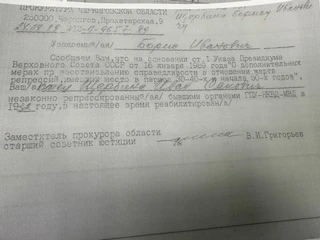 ПРОКУРАТУРА ЧЕРНИГОВСКОЙ ОБЛАСТИ
250000, Чернигов, Пролетарская, 9
Щербина Борису Ивановичу
Уважаемый/ая/ Борис Иванович
Сообщаем Вам, что на основании ст. 1 Указа Президиума
Верховного Совета СССР от 16 января 1989 года "О дополнительных
мерах по восстановлению справедливости в отношении жертв
репрессий, имевших место в период 30-40-х и начала 50-х годов",
Ваш/а/ Щербина Иван
незаконно репрессированный/ая/ бывшими органами ГПУ-НКВД-МВД в
году, в настоящее время реабилитирован/а/
Заместитель прокурора области
старший советник юстиции В.И.Григорьев